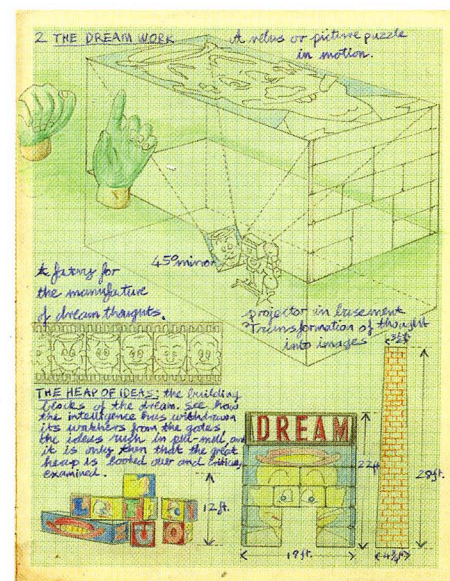 2 THE DREAM WORK
A rebus or picture puzzle
in motion.
45° mirror
A factory for
the manufature
of dream thoughts.
projector in basement
Transformation of thought
into images
THE HEAP OF IDEAS: the building
blocks of the dream. see how
the intelligence has withdrawn
its watchers from the gates
the ideas rush in pell-mell and
it is only then that the great
heap is looked over and critically
examined.
DREAM
12ft.
22ft.
18ft.
28ft.